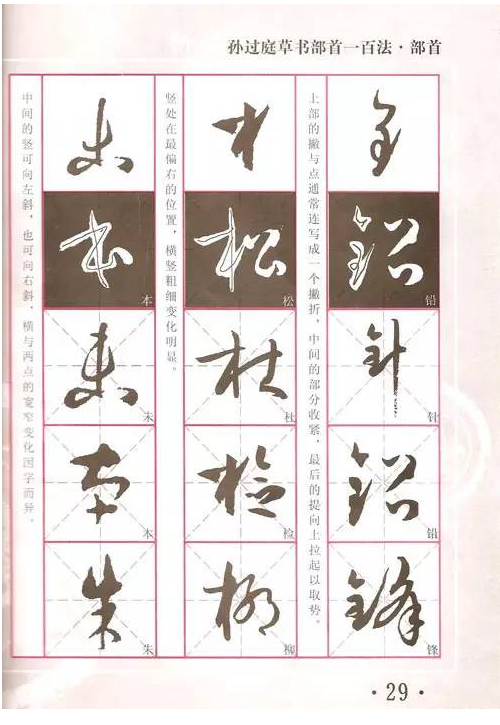 孙过庭草书部首一百法·部首
上部的撇与点通常连写成一个撇折，中间的部分收紧，最后的提向上拉起以取势。
铅
针
铅
锋
竖处在最偏右的位置，横竖粗细变化明显。
松
杜
检
柳
中间的竖可向左斜，也可向右斜，横与两点的宽窄变化因字而异。
本
未
本
朱
·29·